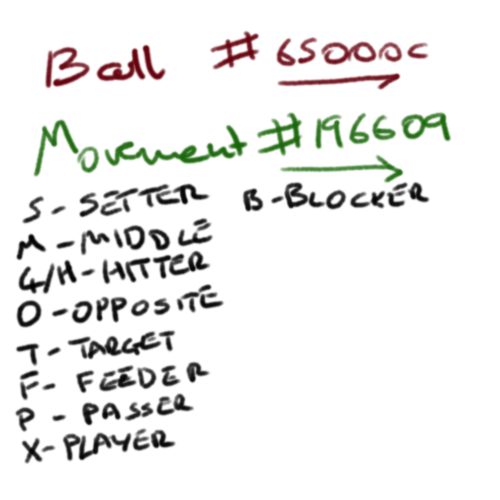 Ball #65000c
Movement #196609
S - SETTER B - BLOCKER
M - MIDDLE
4/H - HITTER
O - OPPOSITE
T - TARGET
F - FEEDER
P - PASSER
X - PLAYER